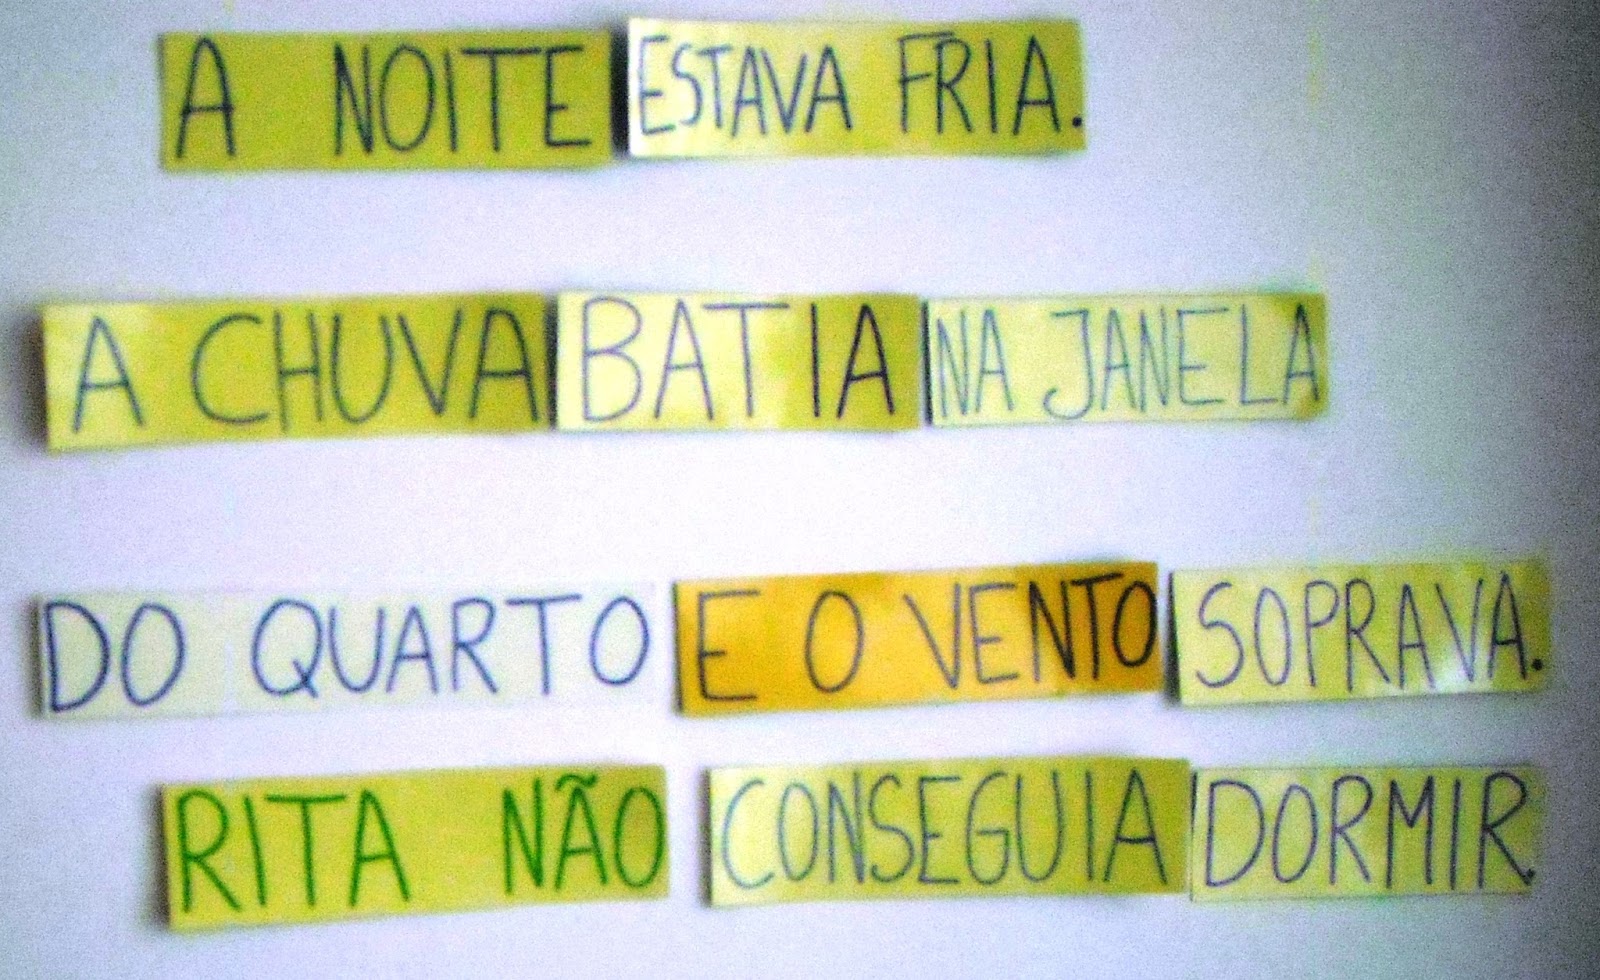 A NOITE ESTAVA FRIA.
A CHUVA BATIA NA JANELA
DO QUARTO E O VENTO SOPRAVA.
RITA NÃO CONSEGUIA DORMIR.